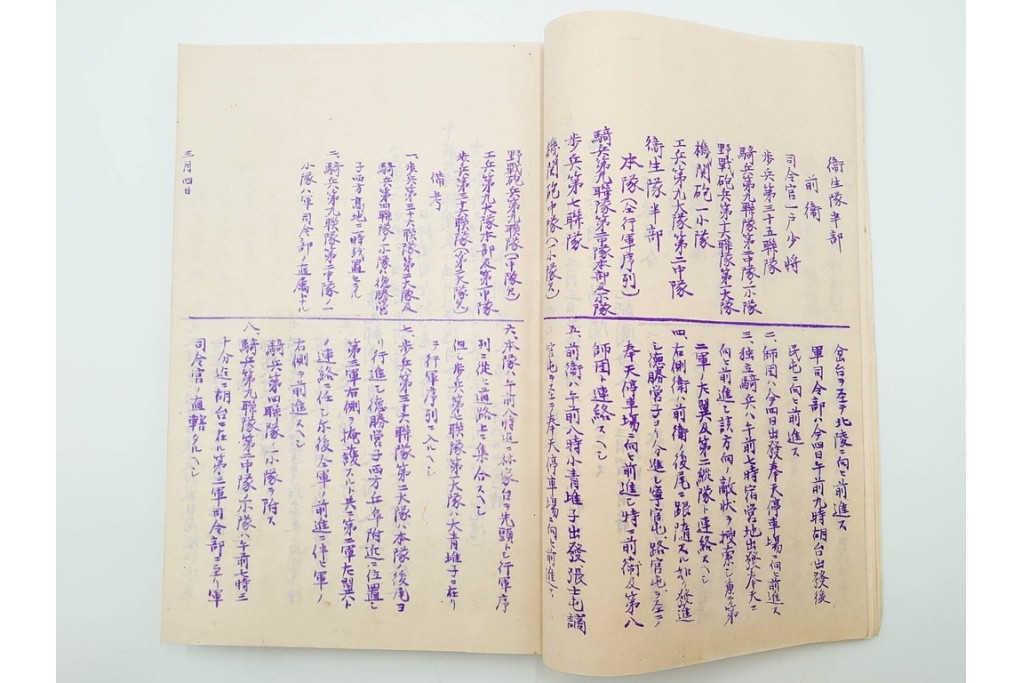 衛生隊半部
前衛
司令官一戸少将
歩兵第三十五聯隊
騎兵第九聯隊第二中隊ノ一小隊
野戰砲兵第十六聯隊第一大隊
機関砲一小隊
工兵第九大隊第二中隊
衛生隊半部
本隊(仝行軍序列)
歩兵第七聯隊
機関砲中隊(一小隊欠)
野戰砲兵第九聯隊(一中隊欠)
工兵第九大隊本部及第一中隊
歩兵第三十六聯隊(第二大隊欠)
備考
一、歩兵第三十六聯隊第二大隊及
騎兵第四聯隊ノ一小隊ハ德勝営
子西方高地ニ一時残置セラル
二、騎兵第九聯隊第二中隊ノ一
小隊ハ軍司令部ノ直属トナル
三月四日
台ヲ至テ北陵ニ向ヒ前進ス
軍司令部ハ今四日午前九時胡台出發後
民屯ニ向ヒ前進ス
二、師團ハ今四日出發奉天停車場ニ向ヒ前進ス
三、独立騎兵ハ午前七時宿営地出發奉天ニ
向ヒ前進シ該方向ノ敵状ヲ捜索シ兼テ第
二軍ノ左翼及第二縦隊ト連絡スヘシ
四、右側衛ハ前衛ノ後尾ニ跟随
シ德勝営子ヨリ分進シ寧官屯路官屯ヲ至テ
奉天停車場ニ向ヒ前進シ時々前衛及第八
師團ト連絡スヘシ
五、前衛ハ午前八時小青堆子出發張士屯
官屯ヲ至テ奉天停車場ニ向ヒ前進
六、本隊ハ午前八時迄ニ林家台ヲ先頭トシ行軍序
列ニ從ヒ道路上ニ集合スヘシ
但シ歩兵第七聯隊第一大隊ハ大青堆子ニ在リ
テ行軍序列ニ入ルヘシ
七、歩兵第三十六聯隊第二大隊ハ本隊ノ後尾ヨ
リ行進シ德勝営子西方丘阜附近ニ位置シ
第三軍右側ヲ掩護スルト共ニ第二軍左翼ト
ノ連絡ニ任シ尓後仝軍ノ前進ニ伴ヒ軍ノ
右側ヲ前進スヘシ
騎兵第四聯隊ノ一小隊ヲ附ス
八、騎兵第九聯隊第二中隊ノ一小隊ハ午前七時三
十分迄ニ胡台ニ在ル第三軍司令部ニ至リ軍
司令官ノ直轄タルヘシ